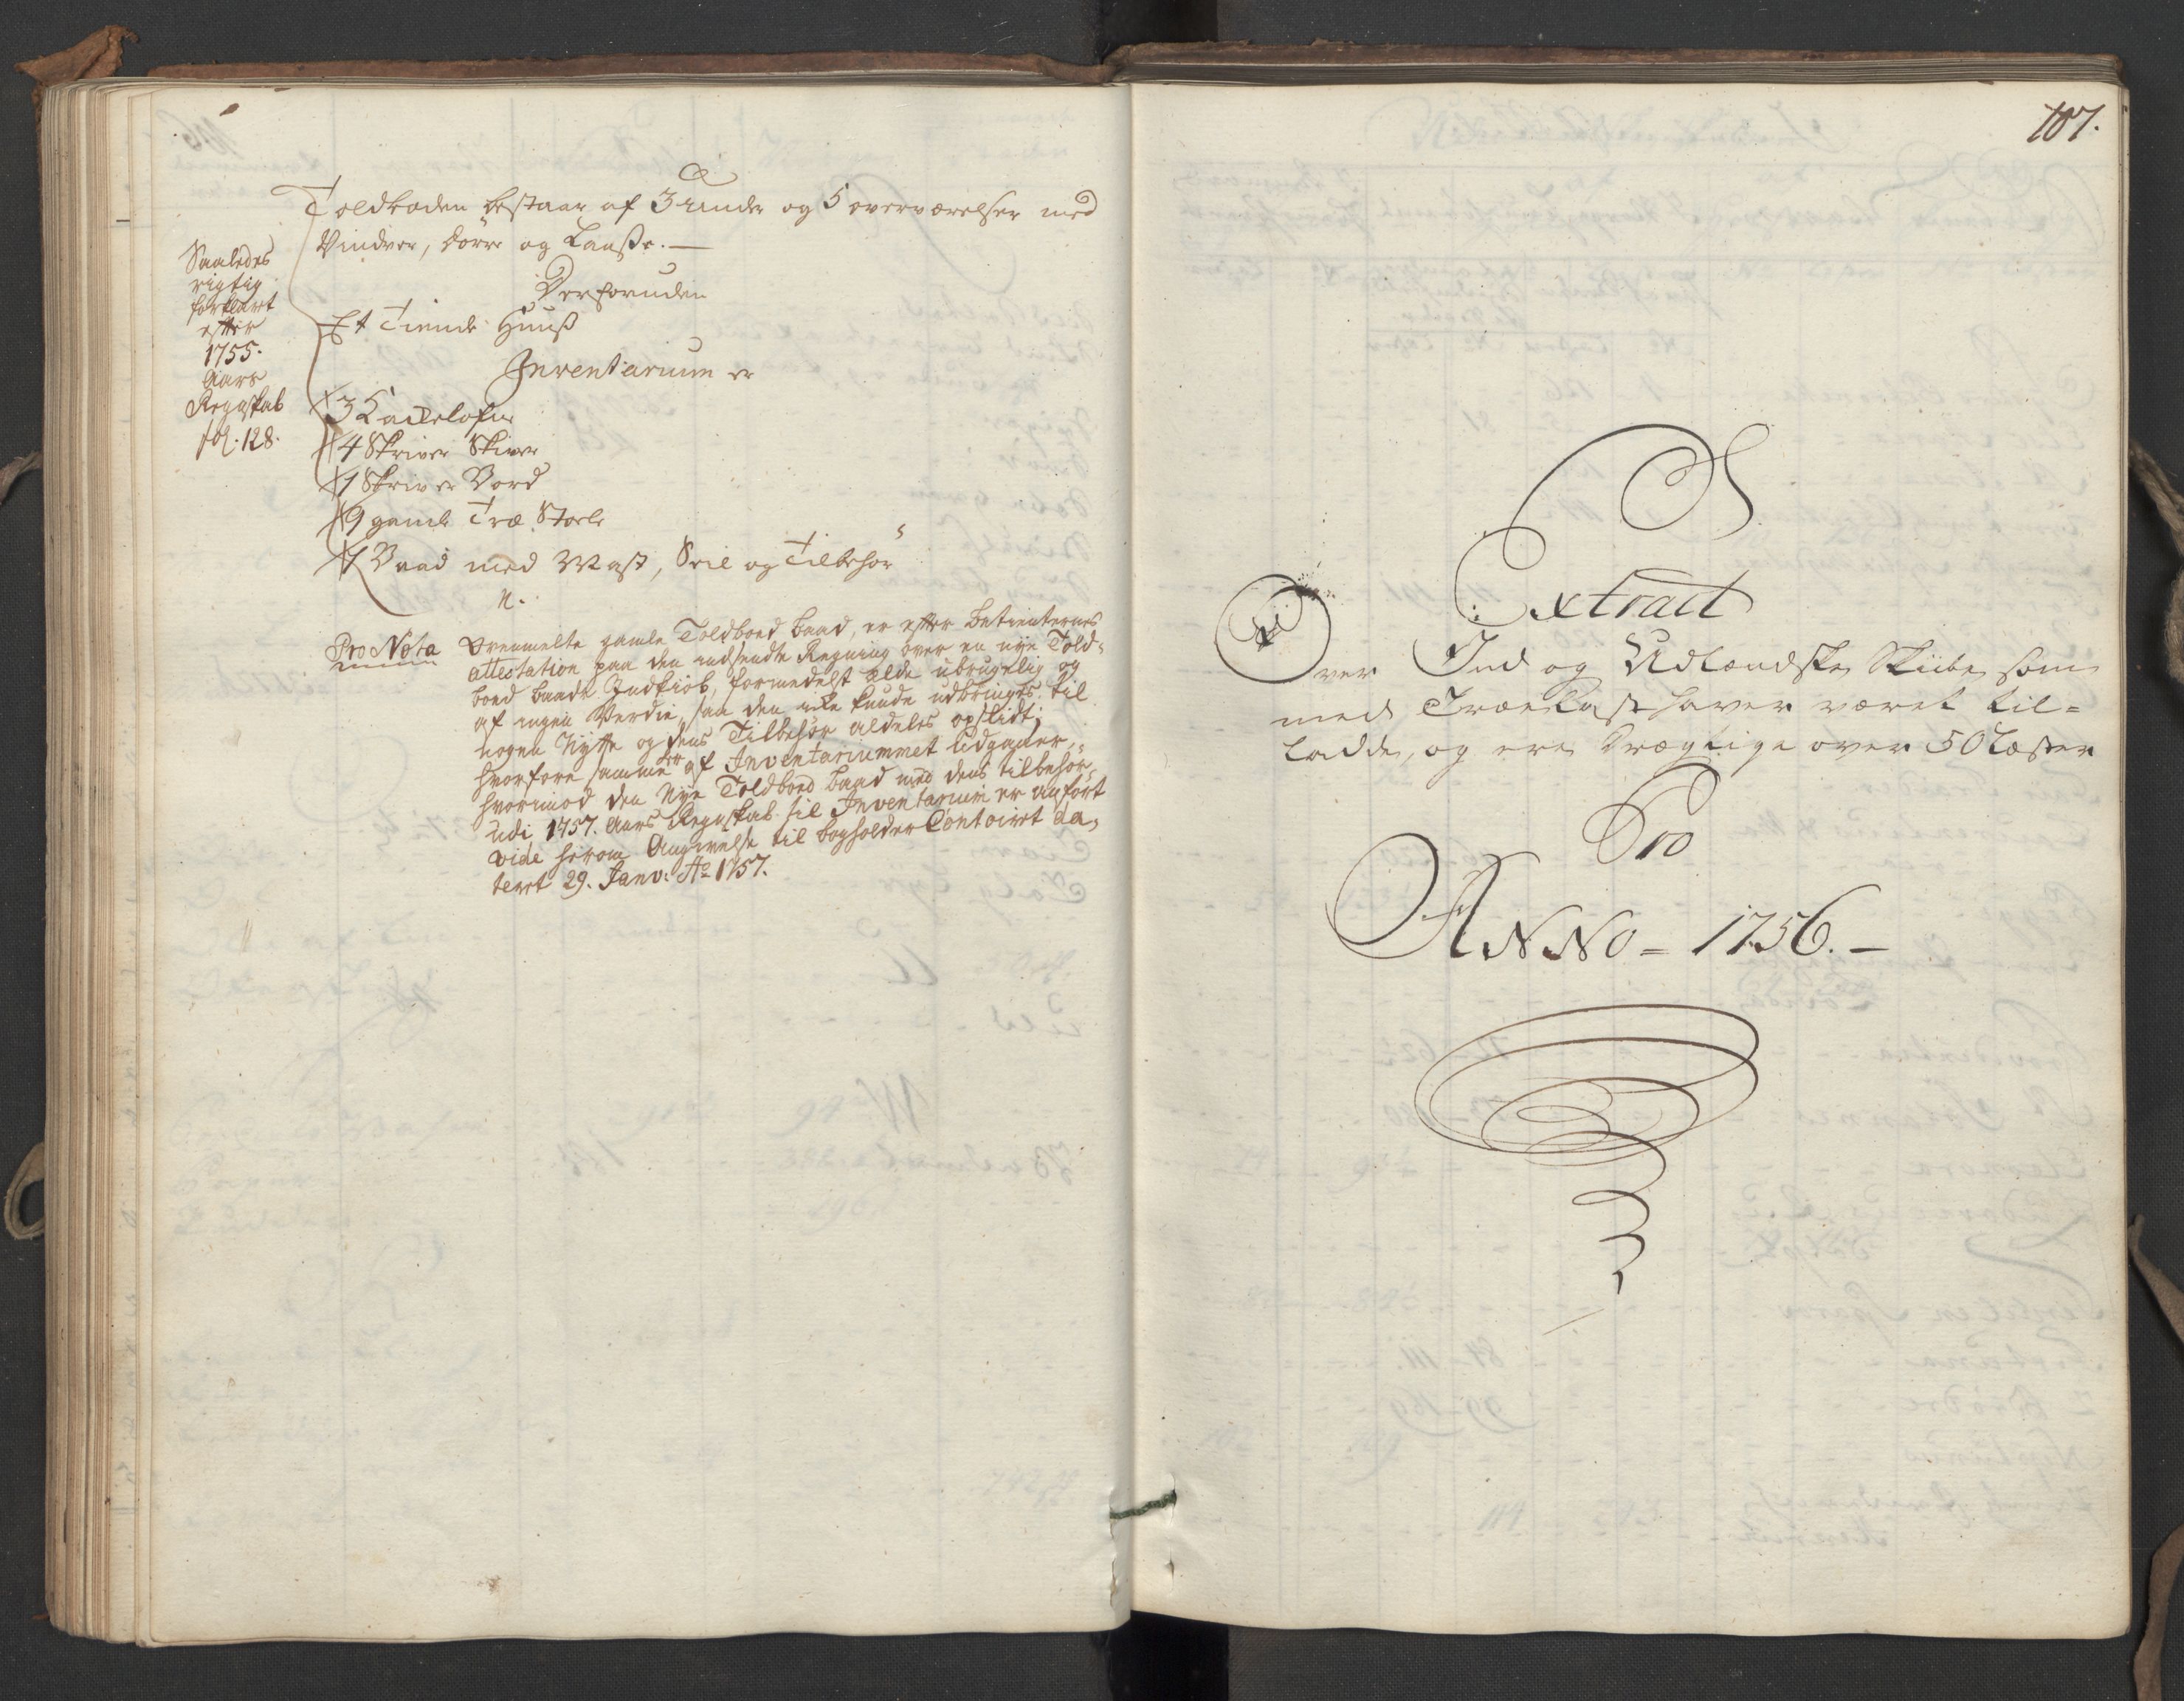 Toldboden bestaar af 3 under og 5 overværelser med
Vinduer, Dörre og Laaße.
Derforuden
Et Tiende Huuß
Inventarium er
3 Kackelofne
4 Skriver Skiver
1 Skriver Bord
9 gamle Træ Stoele
1 Baad med Mast, Seil og Tilbehör
Saaledes
rigtig
forklart
efter
1755.
Aars
Regnskab
fol. 128.
N.
Pro Nota
Ovenmelte gamle Toldboed baad, er efter betienternes
attestation paa den indsendte Regning over en nye Told-
boed baads Indkiöb, formedelst Ælde ubrugelig og
af ingen Verdie, saa den icke kunde udbringes til
nogen Nytte og dens Tilbehör aldeles opslidt;
hvorfore samme her af Inventariummet udgaaer,
hvorimod den Nye Toldboed baad med dens tilbehör
udi 1757. Aars Regnskab til Inventarium er anfört
vide herom Angivelse til bogholder Contoiret da-
teret 29. Janv: Ao 1757.
107.
Extract
Over Ind og Udlændske Skibe som
med Trælast haver været til-
ladde, og ere Drægtige over 50 Læster
Pro
ANNO = 1756. –